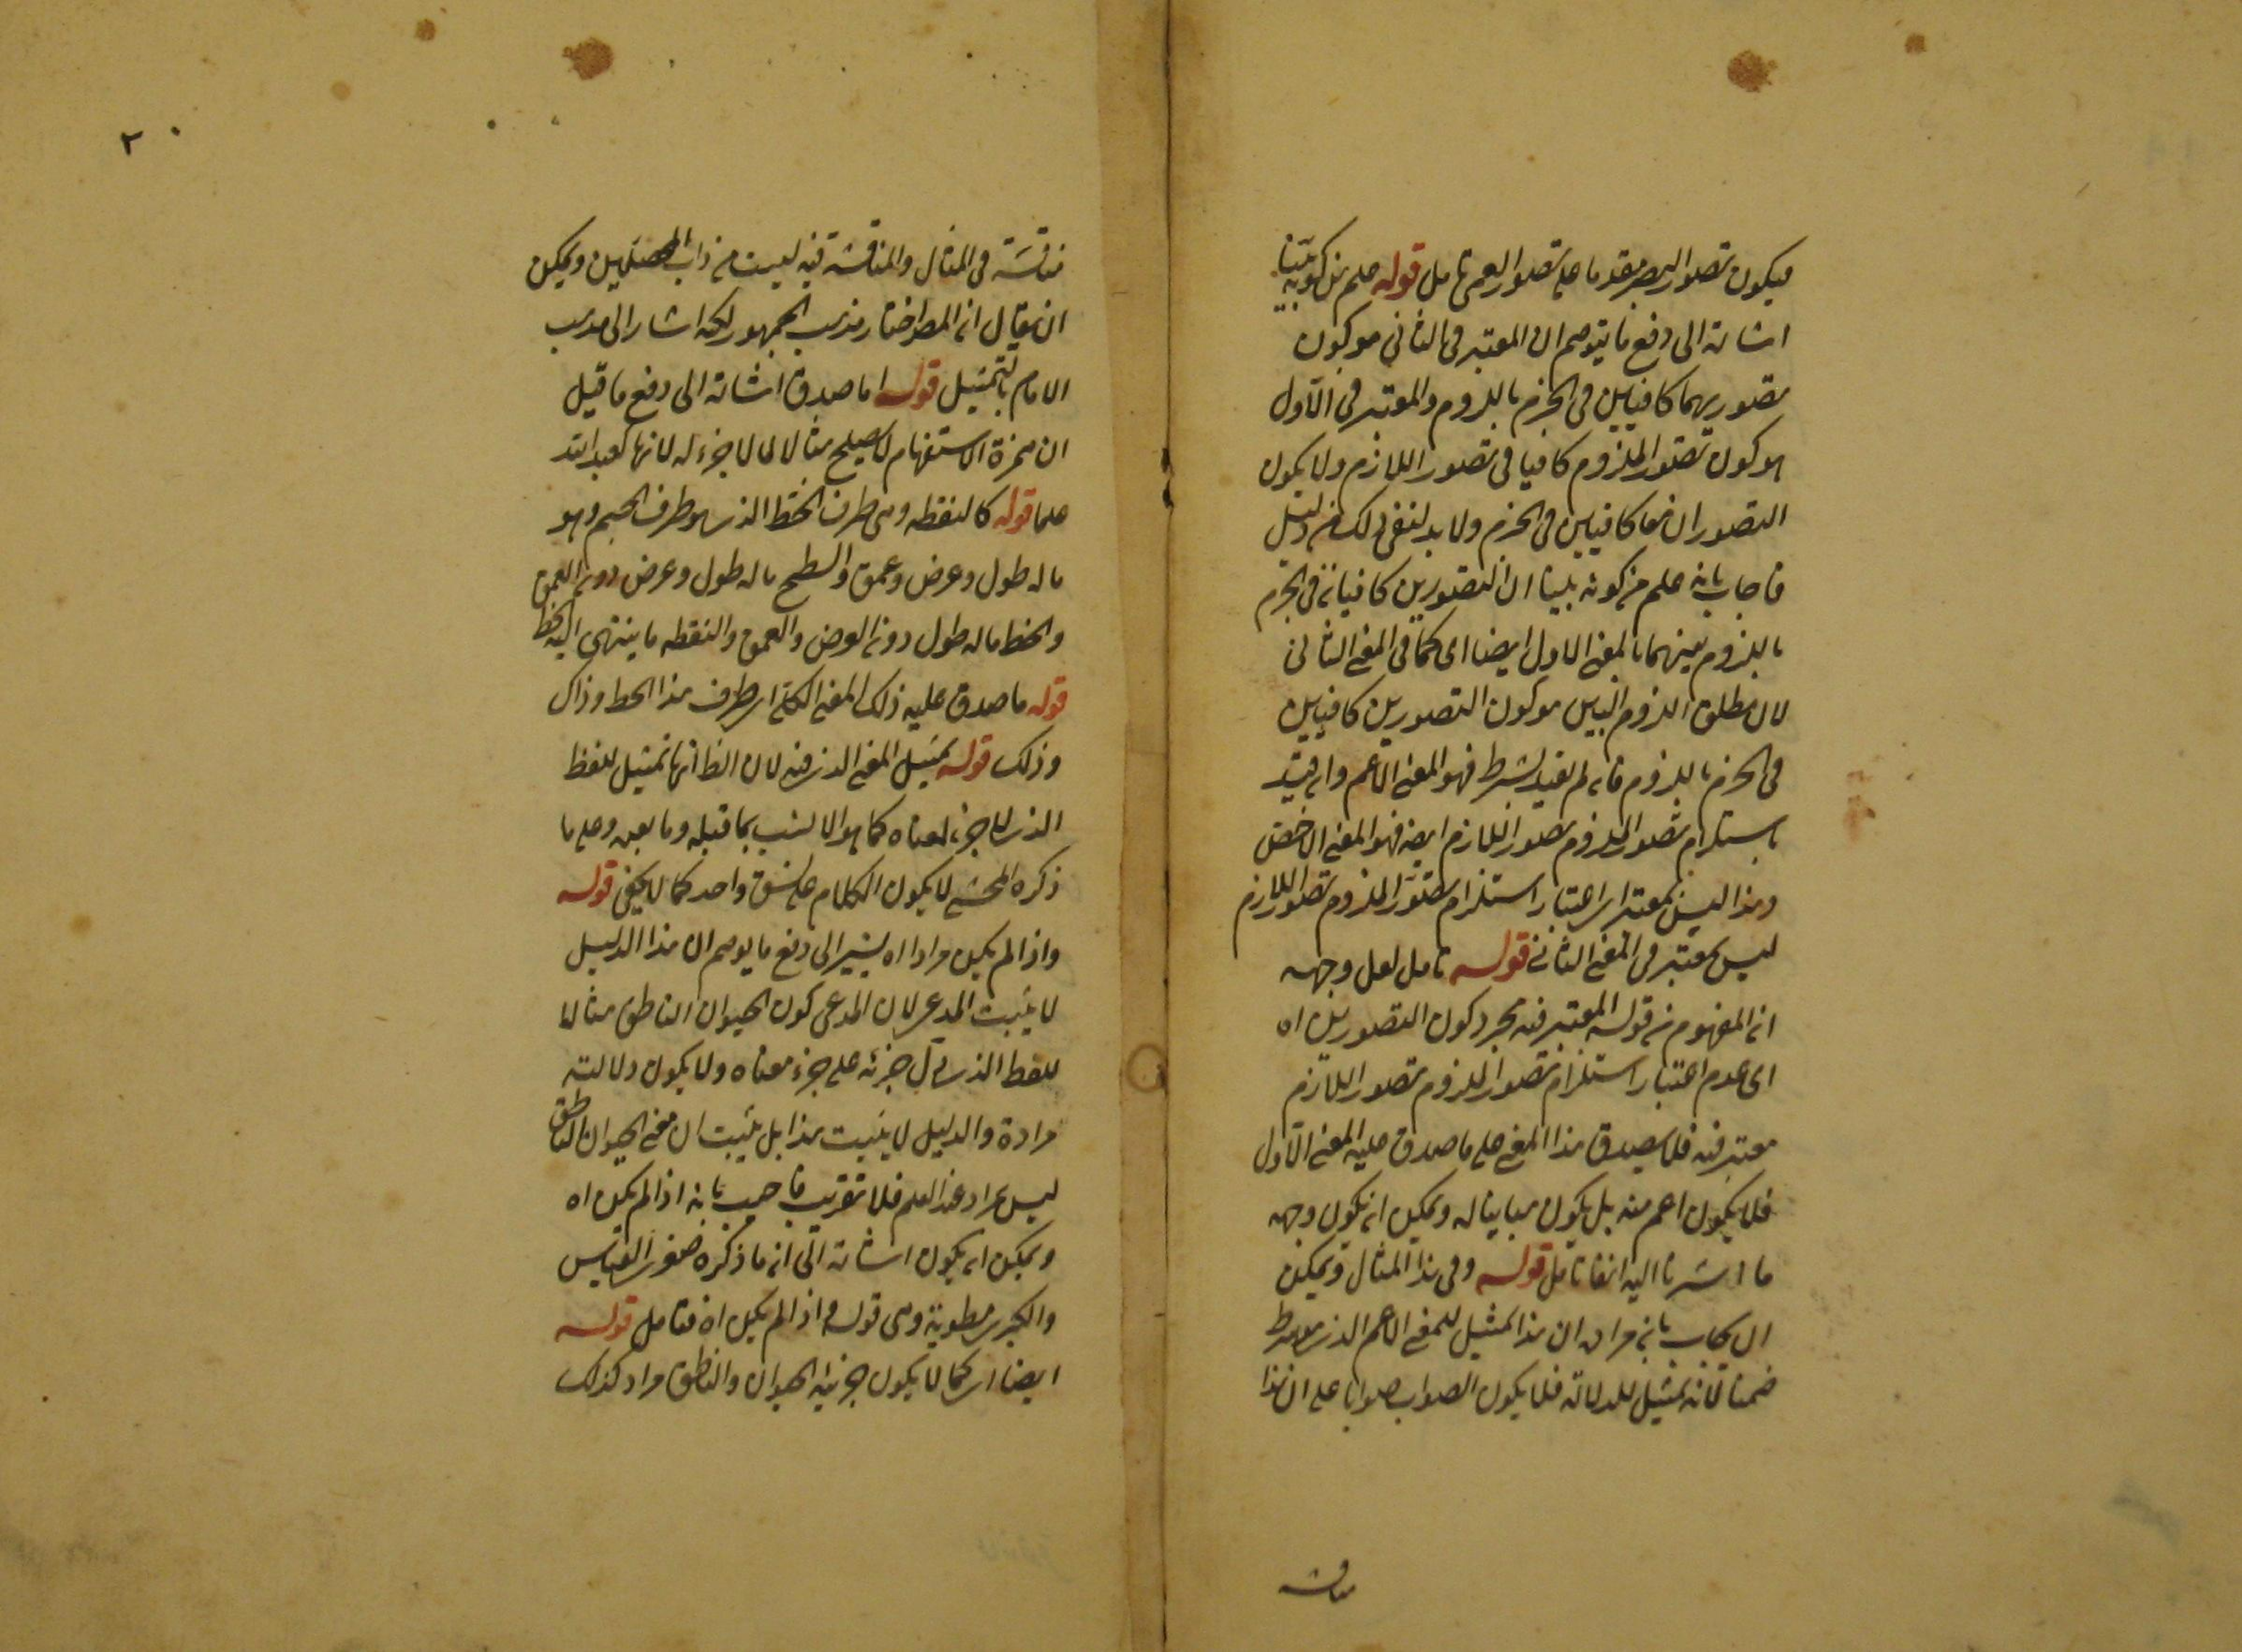 فيكون تصور البصر مقدما على تصور العمى تامل قوله علم من كونه بينا
اشارة الى دفع ما يتوهم ان المعتبر فى الثاني هو كون
تصوريهما كافيين فى الجزم باللزوم والمعتبر فى الاول
هو كون تصور الملزوم كافيا فى تصور اللازم ولا يكون
التصوران معا كافيين فى الجزم ولا بد لنفى ذلك من دليل
فاجاب بانه علم من كونه بينا ان التصورين كافيان فى الجزم
باللزوم بينهما بالمعنى الاول ايضا اى كما فى المعنى الثانى
لان مطلق اللزوم البين هو كون التصورين كافيين
فى الجزم باللزوم فان لم يقيد بشرط فهو المعنى الاعم وان قيد
باستلزام تصور الملزوم تصور اللازم ايضا فهو المعنى الاخص
وهذا ليس بمعتبر اى اعتبار استلزام تصور الملزوم تصور اللازم
ليس بمعتبر فى المعنى الثانى قوله تامل لعل وجهه
ان المفهوم من قوله المعتبر فيه مجرد كون التصورين اه
اى عدم اعتبار استلزام تصور الملزوم تصور اللازم
معتبر فيه فلا يصدق هذا المعنى على ما صدق عليه المعنى الاول
فلا يكون اعم منه بل يكون مباينا له ويمكن ان يكون وجهه
ما اشرنا اليه انفا تامل قوله وفى هذا المثال ويمكن
ان يجاب بان مراده ان هذا تمثيل للمعنى الاعم الذى هو شرط
ضمنا لانه تمثيل للدلالة فلا يكون الصواب صوابا على ان هذا
مناقشة
٢
مناقشة فى المثال والمناقشة فيه ليست من داب المحصلين ويمكن
ان يقال ان المص اختار مذهب الجمهور لكنه اشار الى مذهب
الامام بالتمثيل قوله اما صدق اشارة الى دفع ما قيل
ان همزة الاستفهام لا يصلح مثالا لما لا جزء له لانها كعبد الله
علما قوله كالنقطه وهى طرف الخط الذى هو طرف الجسم وهو
ما له طول وعرض وعمق والسطح ما له طول وعرض دون العمق
والخط ما له طول دون العرض والعمق والنقطه ما ينتهى اليه الخط
قوله ما صدق عليه ذلك المعنى الكلى اى طرف هذا الخط وذاك
وذلك قوله تمثيل المعنى الذى فيه لان الظ انها تمثيل للفظ
الذى لا جزء لمعناه كما هو الانسب بما قبله وما بعده وعلى ما
ذكره المحشى لا يكون الكلام على نسق واحد كما لا يخفى قوله
واذا لم يكن مرادا اه يشير الى دفع ما يوهم ان هذا الدليل
لا يثبت المدعى لان المدعى كون الحيوان الناطق مثالا
للفظ الذى يدل جزئه على جزء معناه ولا يكون دلالته
مرادة والدليل لا يثبت هذا بل يثبت ان معنى الحيوان الناطق
ليس بمراد عند العلم فلا تقريب فاجيب بانه اذا لم يكن اه
ويمكن ان يكون اشارة الى ان ما ذكره صغرى القياس
والكبرى مطوية وهى قوله واذا لم يكن اه فتامل قوله
ايضا اى كما لا يكون جزئية الحيوان والناطق مراد كذلك